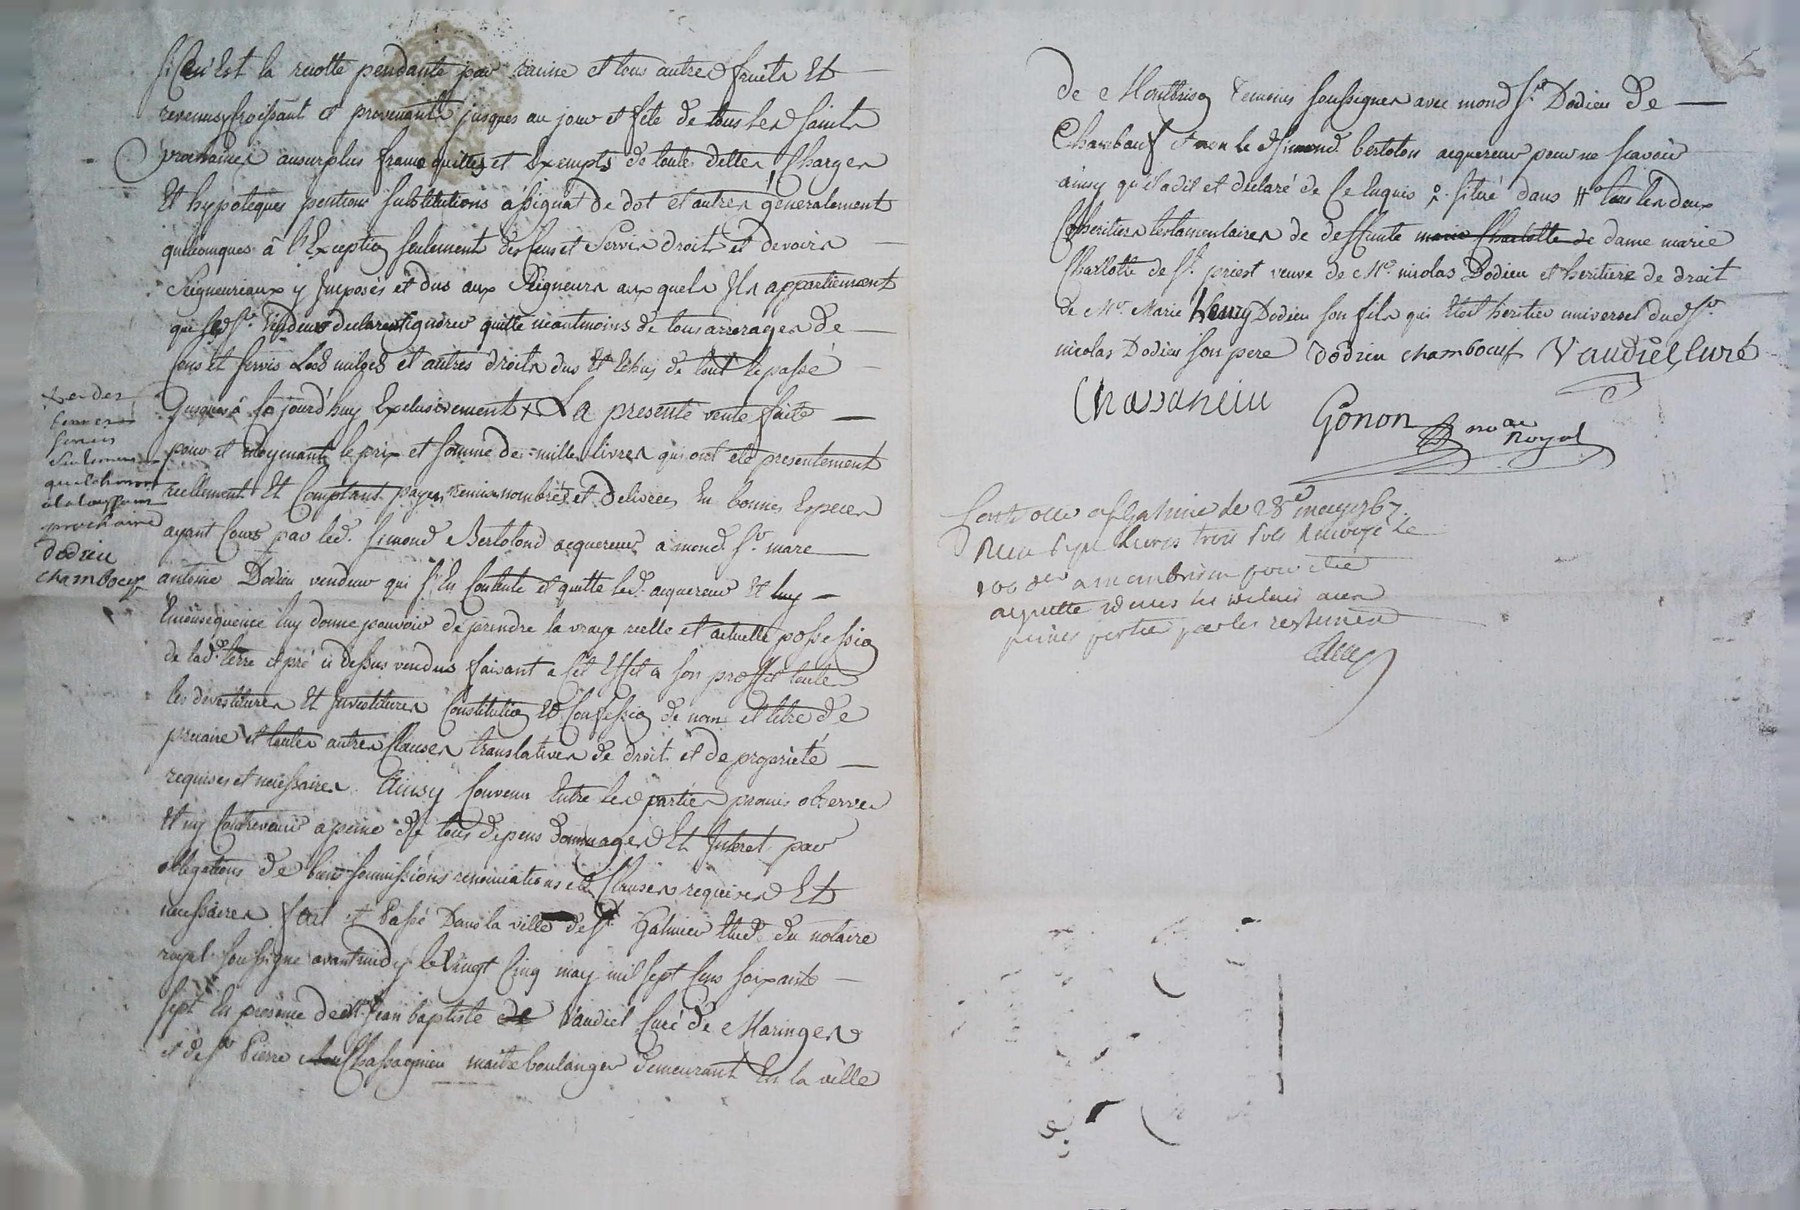 si ce n'est la recolte pendante par racine et tous autres fruits Et
revenus croissant et provenants jusques au jour et fête de tous les saints
prochaines ausurplus franc quittes et Exempts de toutes dettes Charges
Et hypoteques pentions substitutions assignat de dot et autres généralement
quelconques à l'Exception seulement des Cens et Servis droits et devoirs
Seigneuriaux y Imposés et dus aux Seigneurs aux quels Ils appartiennent
que led. Sr. Vendeur declare ignorer quitte néantmoins de tous arrerages de
Cens et servis Lods milods et autres droits dus Et Echus de tout le passé
Jusques à ce jourd'huy Exclusivement + La presente vente faite
pour et moyennant le prix et somme de mille livres qui ont été presentement
reellement Et Comptant payes nombrées et Delivrées En bonnes Especes
ayant Cours par led. Simond Bertolond acquereur a mond. Sr. marc
antoine Dodieu vendeur qui s'En Contente et quitte led. acquereur Et luy
Enconséquence luy donne pouvoir de prendre la vraye reelle et actuelle possession
de lad. terre et pré ci dessus vendus faisant a Cet Effet a son proffit toutes
les devestitures Et Investitures Constitution Et Confession de nom et titre de
precaire et toutes autres Clauses translatives de droit et de propriété
requises et necessaires. Ainsy Convenu Entre les parties promis observer
Et ny Contrevenir a peine de tous depens Dommages Et Interet par
obligations de biens soumissions renonciations et Clauses requises Et
necessaires fait et Passé Dans la ville de St. Galmier Etude du notaire
royal soussigné avant midy le vingt Cinq may mil sept Cens soixante
sept En presence de Mr. Jean baptiste Vaudiel Curé de Maringes
et de Sr. Pierre Chassagnieu maitre boulanger demeurant En la ville
Servis
seulement
a la toussaint
prochaine
dodieu
chamboeuf
de Montbrison temoins soussignes avec mond Sr. Dodieu de
Chambœuf & non led Simond bertolon acquereur pour ne scavoir
ainsy qu'il a dit et declaré de Ce Enquis
Coheritiers testamentaires de deffunte marie Charlotte de dame marie
Charlotte de St. priest veuve de Mre. nicolas Dodieu et heritiere de droit
de Mr. Marie henry Dodieu son fils qui Etoit heritier universel dud Sr.
nicolas Dodieu son pere dodieu chamboeuf Vaudiel curé
Chassanieu
Gonon nore
Royal
Controllé a St Galmier le 28e may 1767.
Reçu sept livres trois sols Renvoyé le
100 der a montbrison pour être